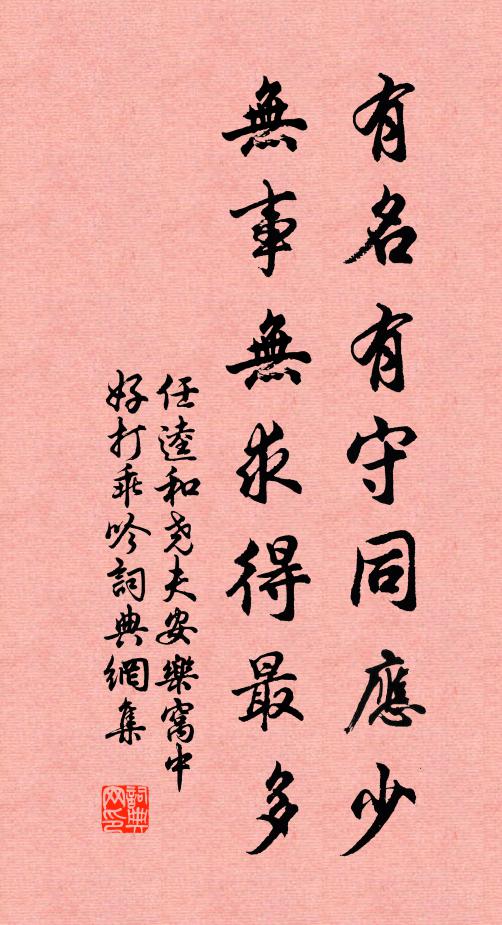 有名有守同應少
無事無求得最多
任逵和堯夫安樂窩中
好打乖吟詞典網集
詞典
网印